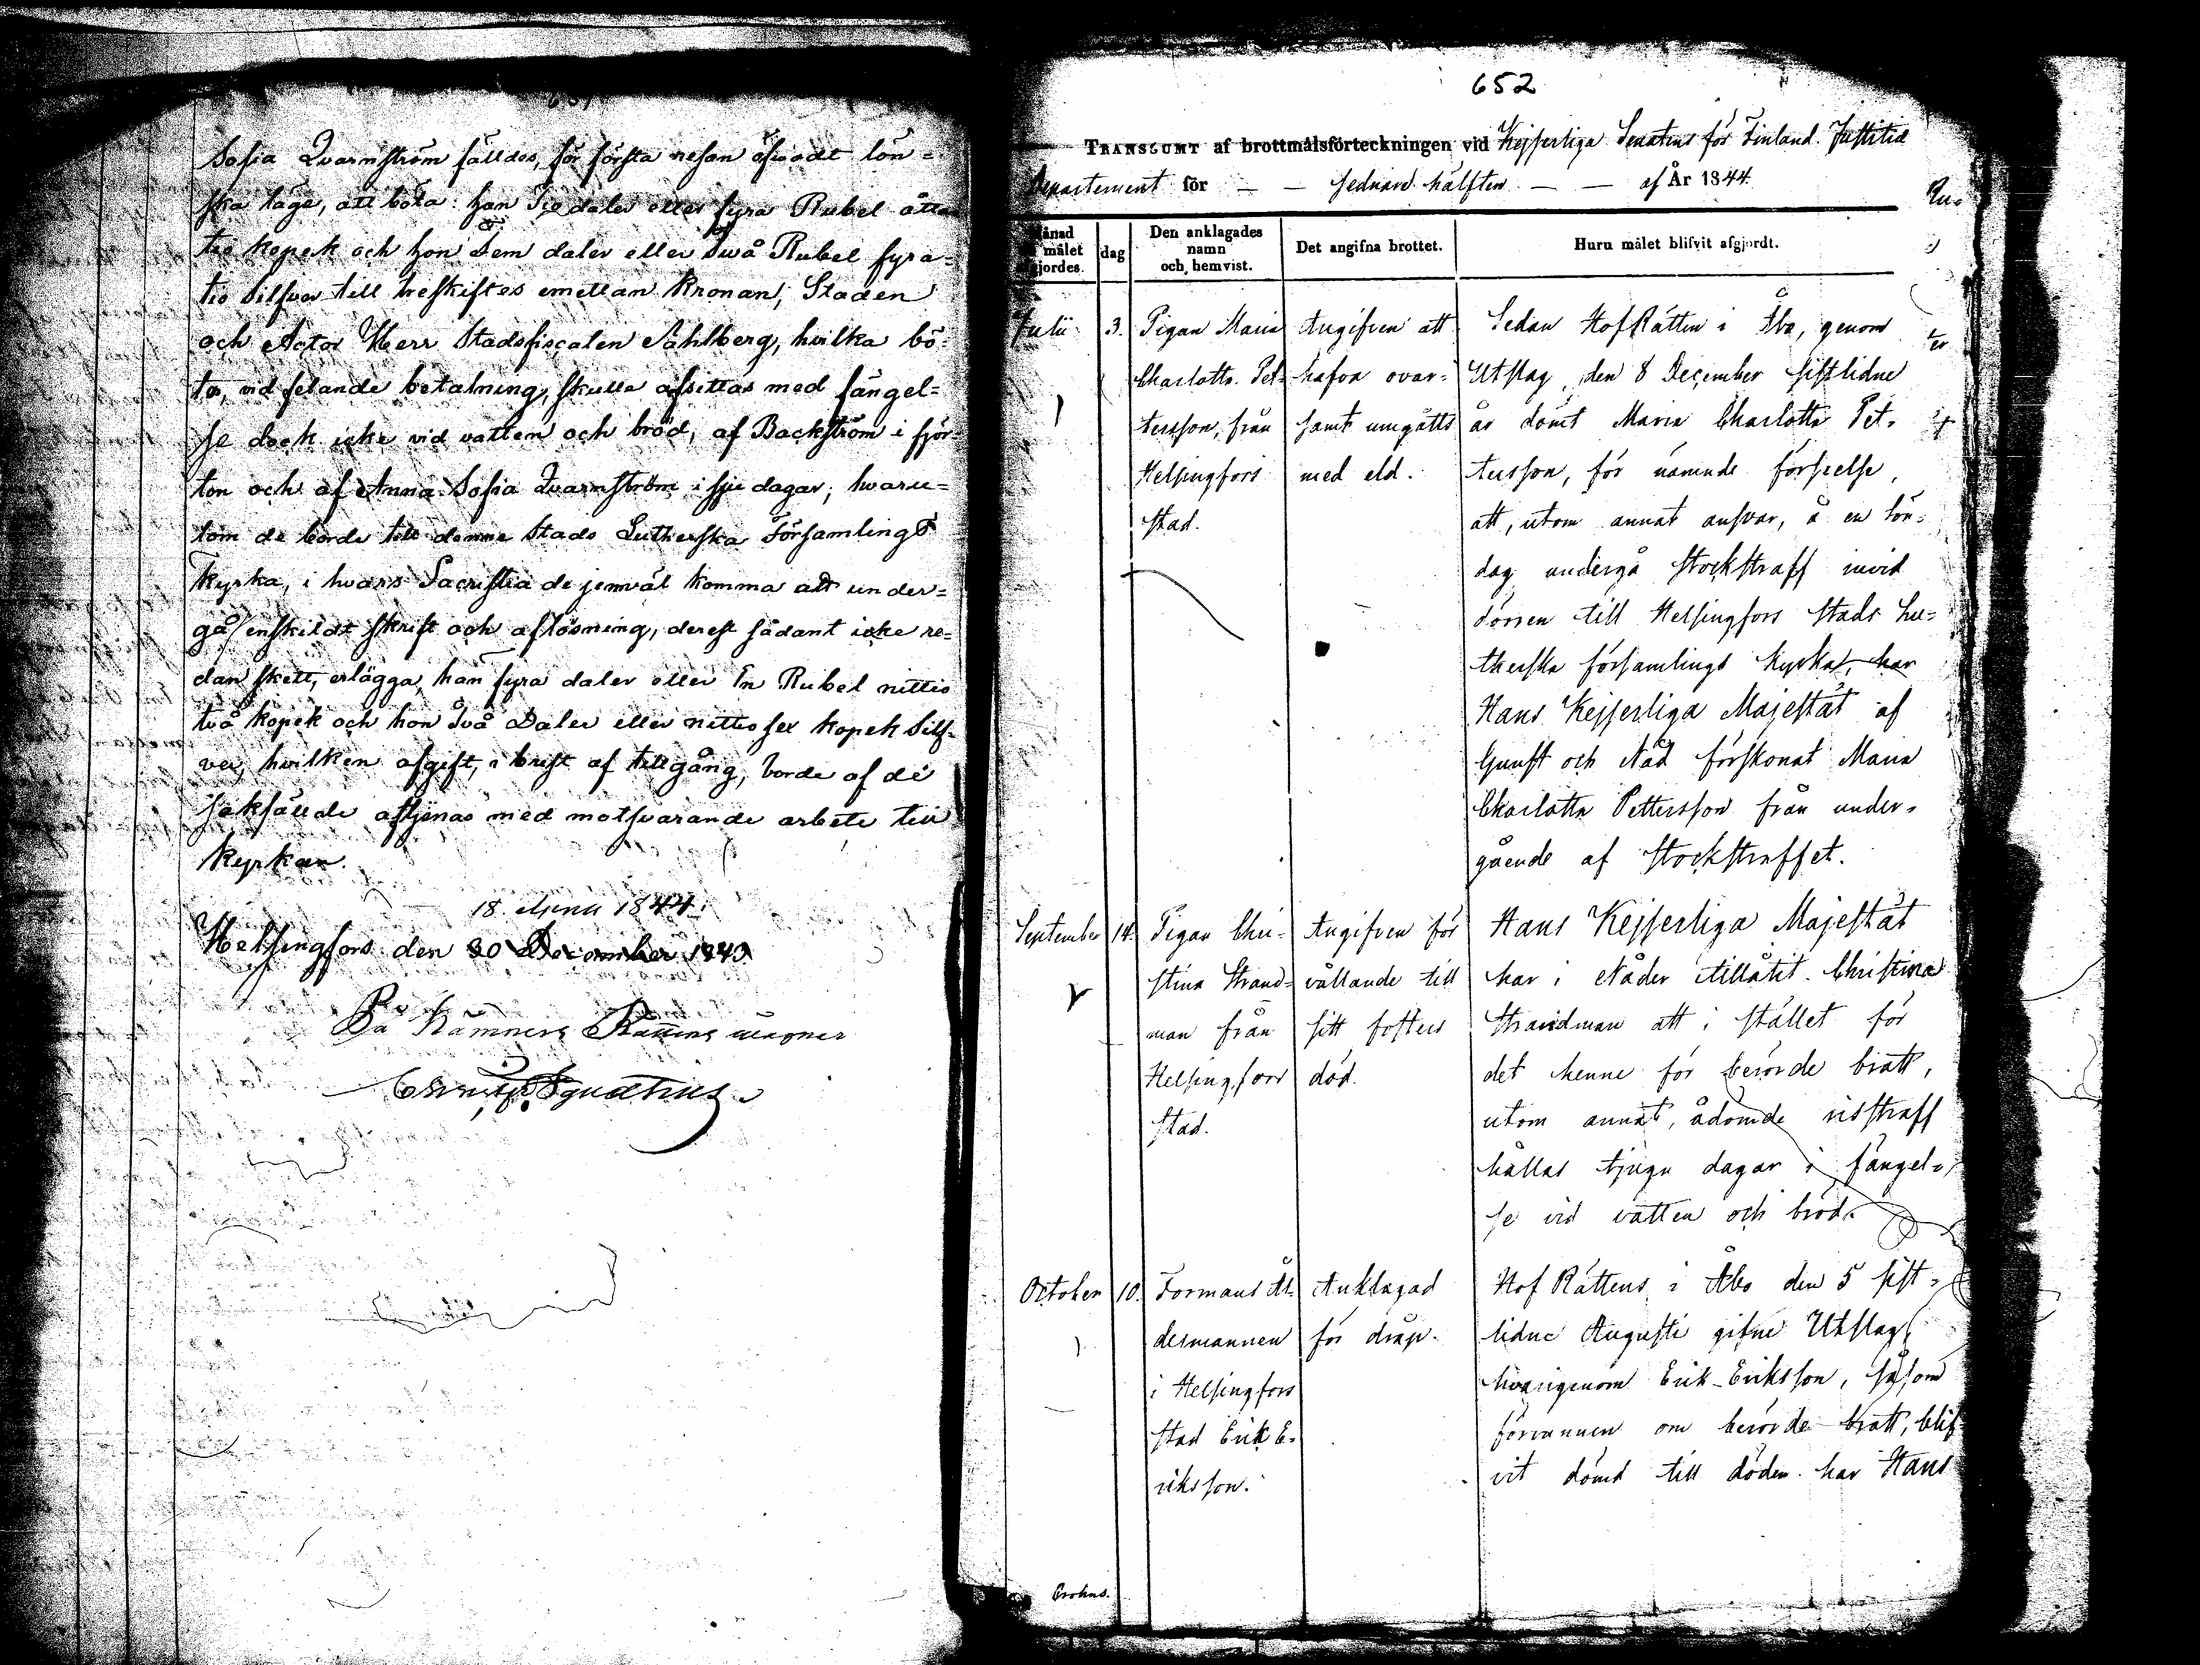 Sofia Qvarnström fälldes, för första resan öfvadt lön=
ska läge, att böta: han Tio daler eller fyra Rubel åtta
tio kopek och hon Fem daler eller två Rubel fyra=
tio Silfver till treskiftes emellan Kronan, Staden
och Actor Herr Stadsfiscalen Sahlberg, hvilka bö=
ter, vid felande betalning, skulle afsittas med fängel=
se dock icke vid vatten och bröd, af Backström i fjor=
ton och af Anna Sofia Qvarnström i sju dagar; hvaru=
tom de borde till denna Stads Lutherska Församlings
Kyrka, i hvars Sacristia de jemväl komma att under=
gå enskildt skrift och aflösning, derest sådant icke re=
dan skett, erlägga, han fyra daler eller En Rubel nittio
två kopek och hon Två Daler eller nittio sex kopek Silf=
ver, hvilken afgift, i brist af tillgång, borde af de
sakfällde aftjenas med motsvarande arbete till
Kyrkan.
18 1844.
Helsingfors den 30 December 1843
På Kämners Rättens vägnar
Ignatius
652
TRANSUMT af brottmålsförteckningen vid Kejserliga Senatens för Finland Justitiæ
Departement för — — sednare hälften — — af År 1844.
Månad
målet
gjordes.
dag
Den anklagades
namn
och hemvist.
Det angifna brottet.
Huru målet blifvit afgjordt.
Julii
3.
Pigan Maria
Charlotta Pet=
tersson, från
Helsingfors
stad.
Angifven att
hafva ovar=
samt umgåtts
med eld.
Sedan HofRätten i Åbo, genom
Utslag den 8 December sistlidne
år dömt Maria Charlotta Pet=
tersson, för nämnde förseelse,
att, utom annat ansvar, å en sön=
dag undergå stockstraff invid
dörren till Helsingfors stads Lu=
therska församlings kyrka, har
Hans Kejserliga Majestät af
Gunst och Nåd förskonat Maria
Charlotta Pettersson från under=
gående af stockstraffet.
September
14.
Pigan Chri=
stina Strand=
man från
Helsingfors
stad.
Angifven för
vållande till
sitt fosters
död.
Hans Kejserliga Majestät
har i Nåder tillåtit Christina
Strandman att i stället för
det henne för berörde brott,
utom annat, ådömde risstraff
hållas tjugu dagar i fängel=
se vid vatten och bröd.
October
10.
Formans Ål=
dermannen
i Helsingfors
stad Erik E=
riksson.
Anklagad
för dråp.
Hof Rättens i Åbo den 5 sist=
lidne Augusti gifne Utslag,
hvarigenom Erik Eriksson, såsom
förvunnen om berörde brott, blif=
vit dömd till döden har Hans